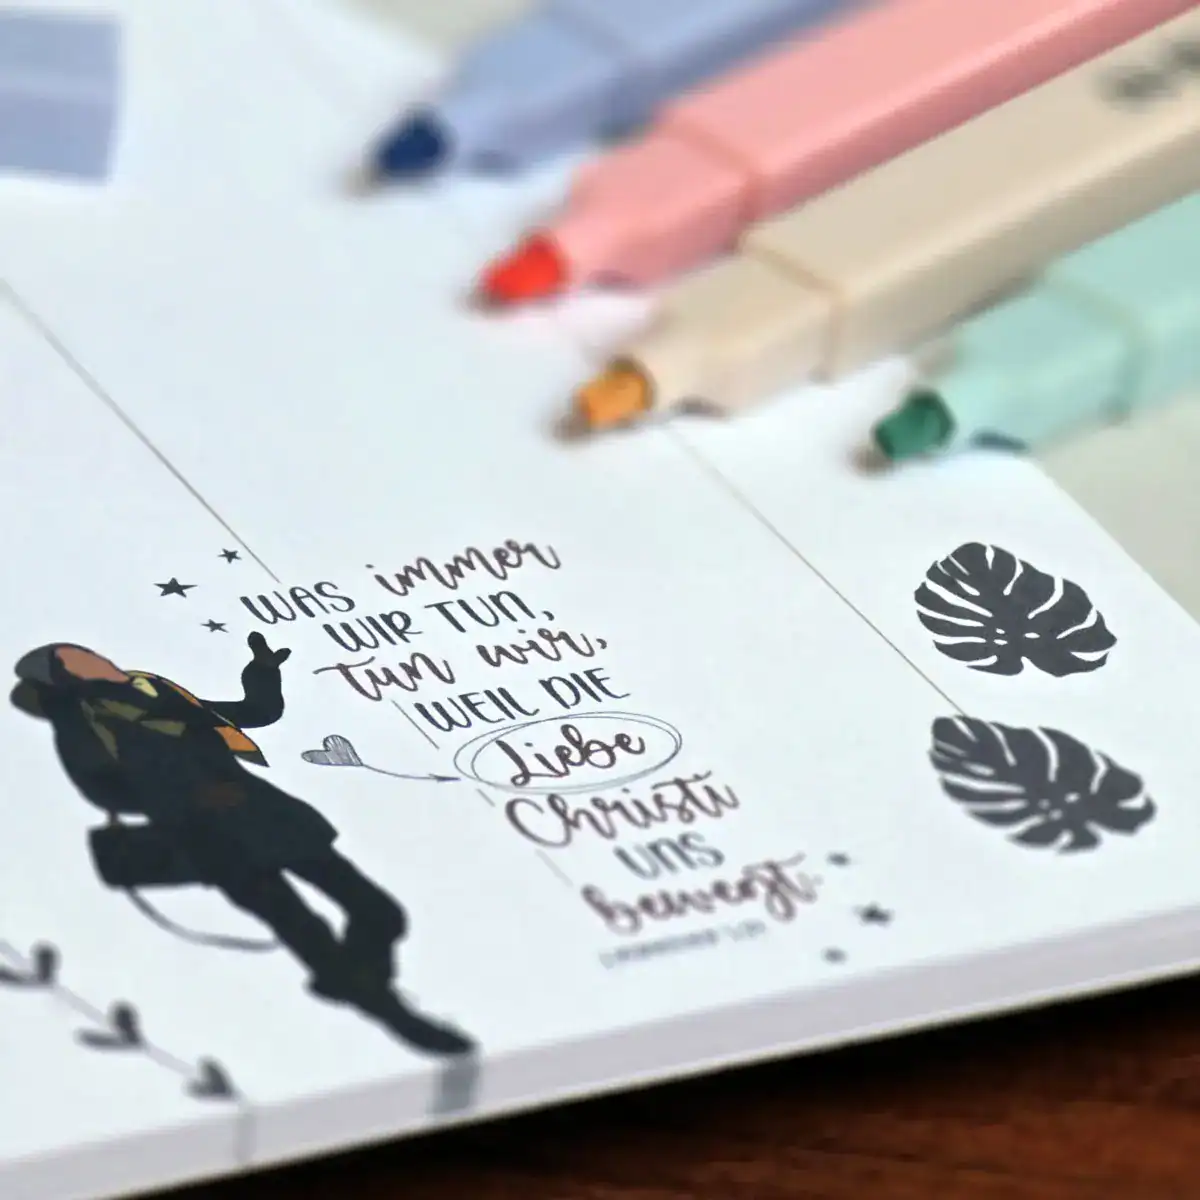 WAS immer
WIR TUN,
tun wir,
WEIL DIE
Liebe
Christi
UNS
bewegt.